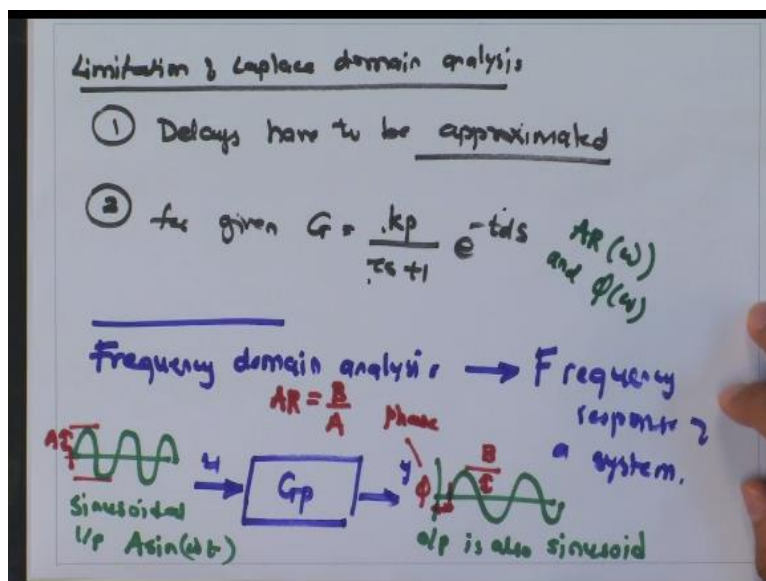 Limitation of Laplace domain analysis
① Delays have to be approximated
② for given G = kp / τs+1 e^-tds
AR(ω)
and φ(ω)
Frequency domain analysis → Frequency
response of
a system.
AR = B/A
Phase
A
u
Gp
y
φ
B
sinusoidal
i/p A sin(ωt)
o/p is also sinusoid